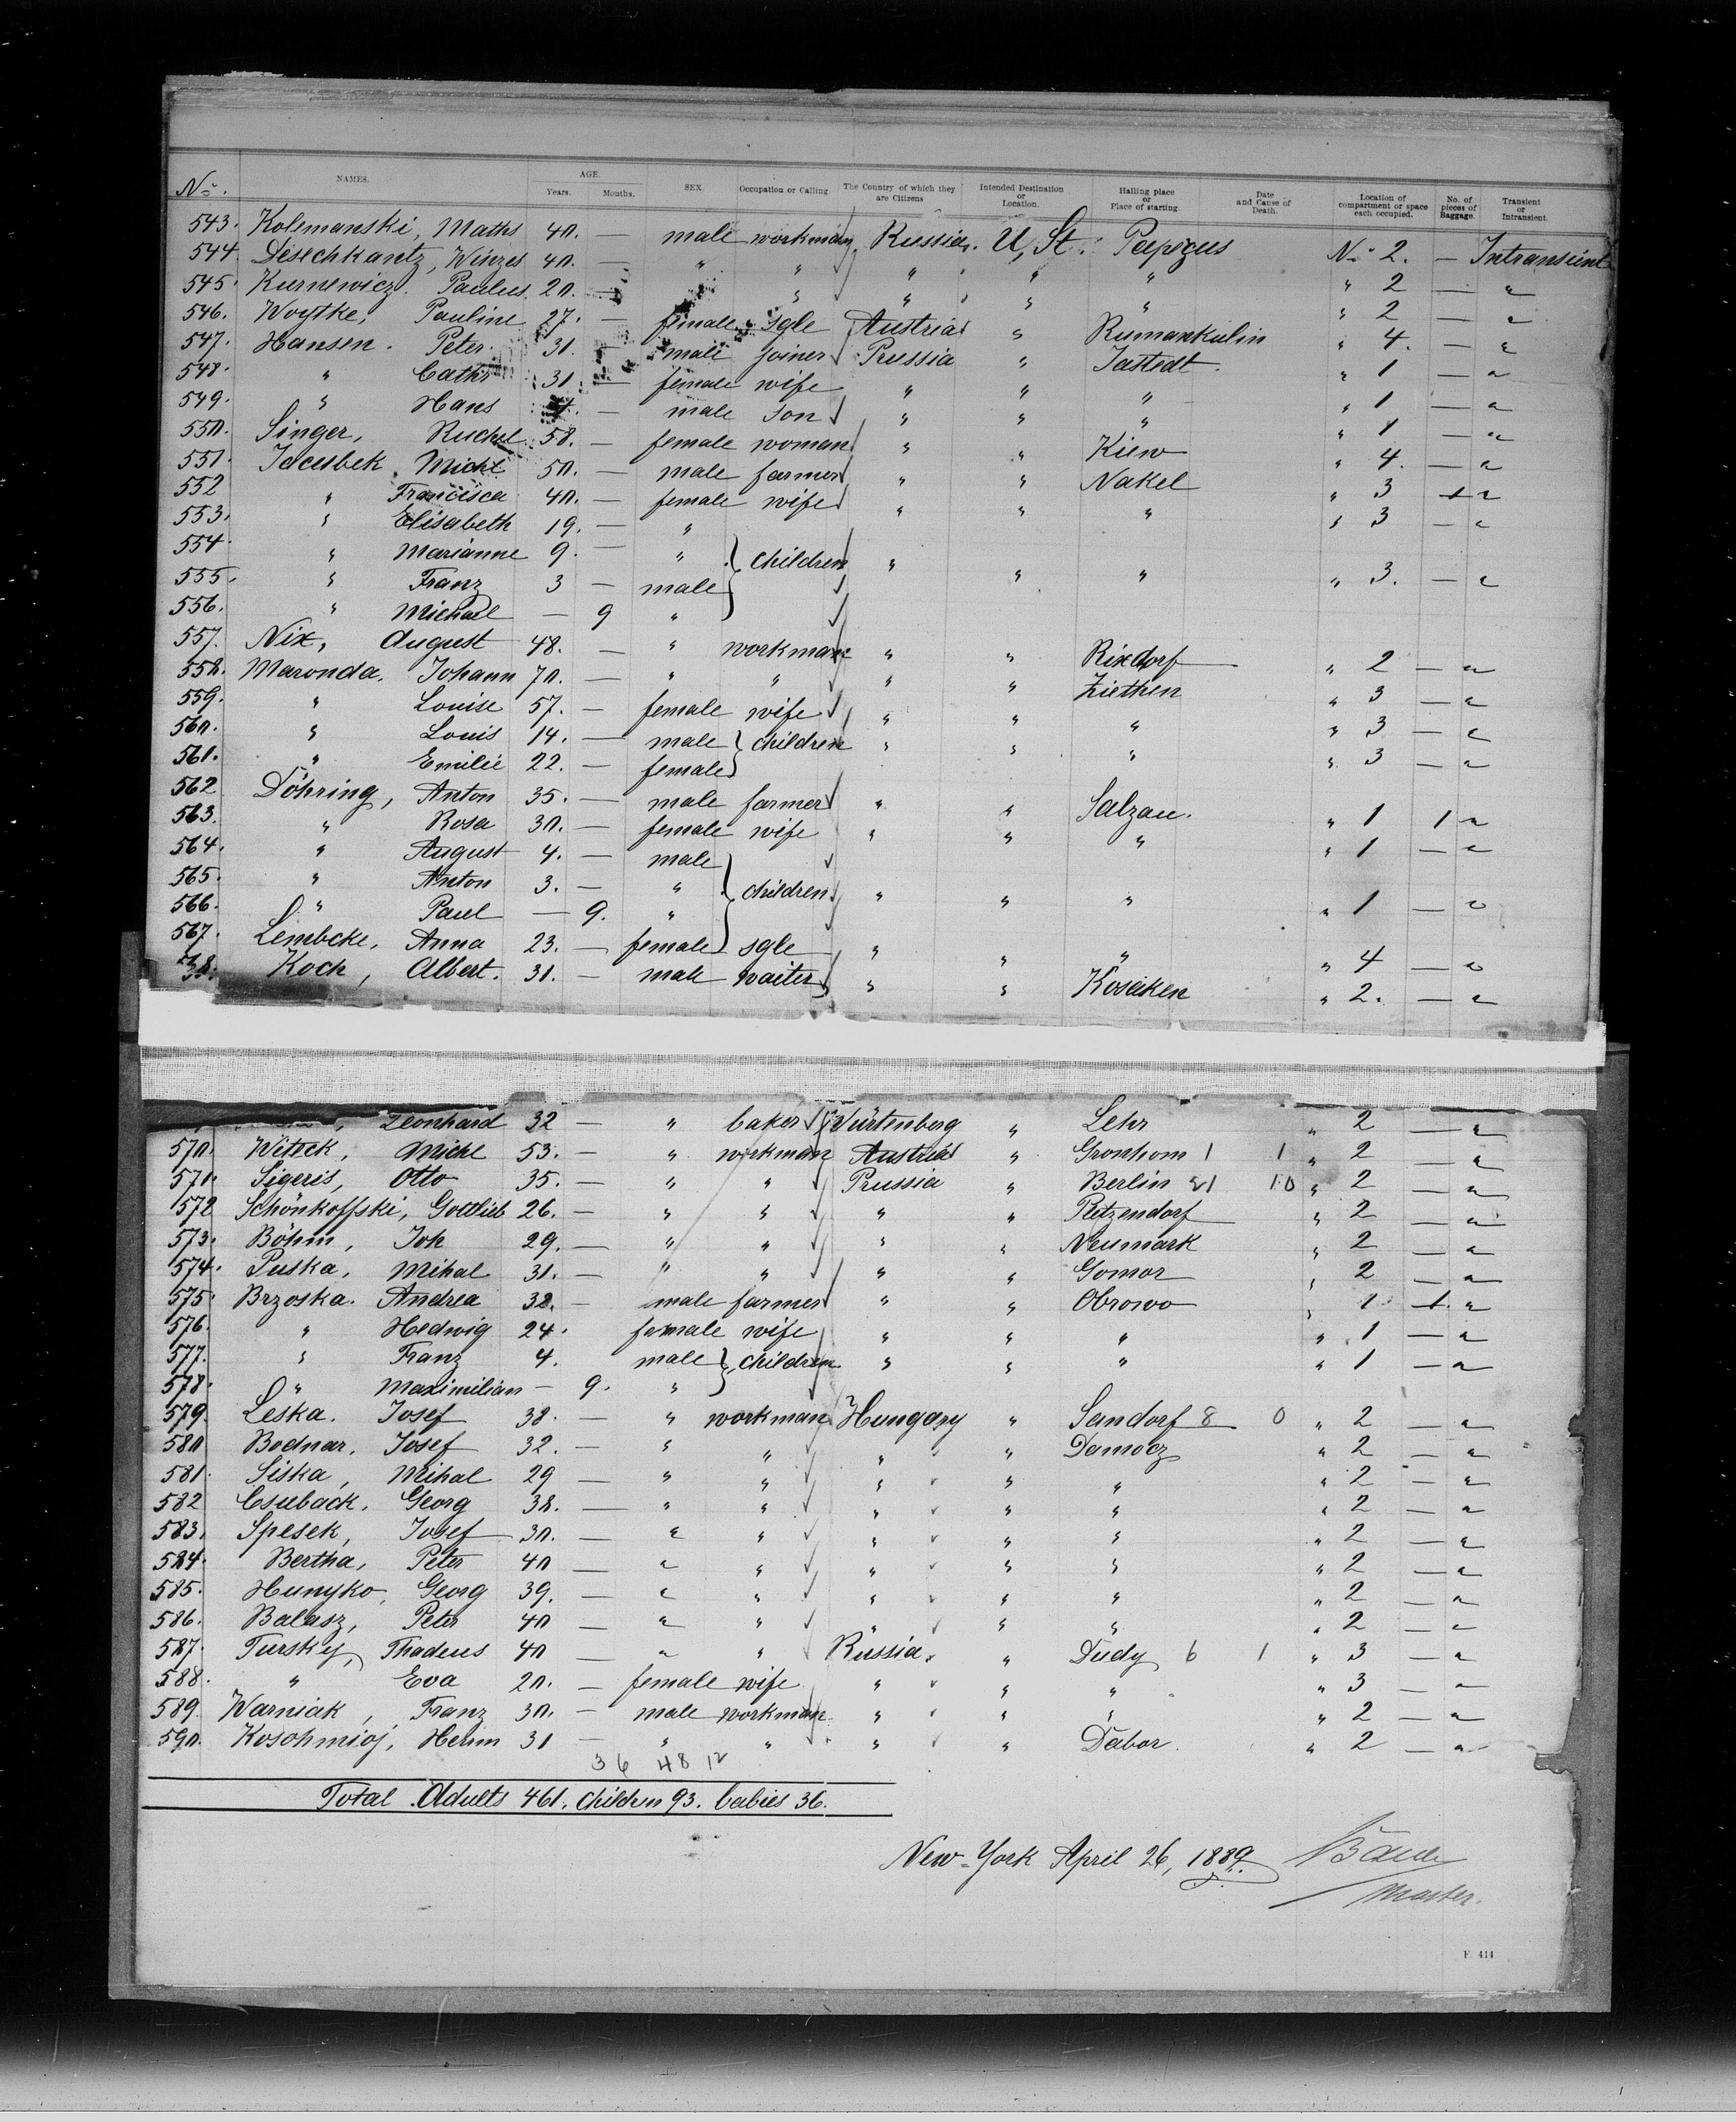 No. NAMES. AGE. Years. Months. SEX. Occupation or Calling The Country of which they are Citizens Intended Destination or Location. Hailing place or Place of starting. Date and Cause of Death. Location of compartment or space each occupied. No. of pieces of Baggage. Transient or Intransient.
543. Kolemanski, Maths 40. — male workman Russia. U, St. Papezus No 2. — Intransient
544. Desechkantz, Winzes 40. — " " " " " " 2 — "
545. Kurnewicz. Paulus. 20. — " " " " " " 2 — "
546. Woytke, Pauline 27. — female sgle Austria " Rumankulin " 4. — "
547. Hansen. Peter. 31. — male joiner Prussia " Jastedt. " 1 — "
548. " Cathr 31. — female wife " " " " 1 — "
549. " Hans 4. — male son " " " " 1 — "
550. Singer, Ruchel 58. — female woman " " Kiew " 4. — "
551. Jacesbek. Michl 50. — male farmer " " Nakel " 3 1 "
552 " Francisca 40. — female wife " " " " 3 — "
553. " Elisabeth 19. — "
554. " Marianne 9. — " children " " " " 3. — "
555. " Franz 3 — male
556. " Michael — 9 "
557. Nix, August 48. — " workman " " Rixdorf " 2 — "
558. Maronda. Johann 70. — " " " " Ziethen " 3 — "
559. " Louise 57. — female wife " " " " 3 — "
560. " Louis 14. — male children " " " " 3 — "
561. " Emilie 22. — female
562 Döhring, Anton 35. — male farmer " " Salzau. " 1 1 "
563. " Rosa 30. — female wife " " " " 1 — "
564. " August 4. — male
565. " Anton 3. — " children " " " " 1 — "
566. " Paul — 9. "
567. Lembcke, Anna 23. — female sgle " " " " 4 — "
Koch, Albert. 31. — male waiter " " Kosaken " 2. — "
, Leonhard 32 — " baker Würtenberg " Lehr " 2 — "
570. Witeck, Michl 53. — " workman Austria " Gronhom 1 1 " 2 — "
571. Sigeris, Otto 35. — " " Prussia " Berlin 21 10 " 2 — "
572 Schönkoffski, Gottlieb 26. — " " " " Pletzendorf " 2 — "
573. Böhm, Joh 29. — " " " " Neumark " 2 — "
574. Puska, Mihal 31. — " " " " Gomor " 2 — "
575. Brzoska. Andrea 38. — male farmer " " Obrowo " 1 1. "
576. " Hedwig 24. female wife " " " " 1 — "
577. " Franz 4. male children " " " " 1 — "
578. " Maximilian — 9. "
579. Leska. Josef 38. — " workman Hungary " Sandorf 8 0 " 2 — "
580 Bodnar, Josef 32. — " " " " Damocz " 2 — "
581. Siska, Mihal 29 — " " " " " " 2 — "
582 Csuback. Georg 38. — " " " " " " 2 — "
583. Spesek, Josef 30. — " " " " " " 2 — "
584. Bertha, Peter 40 — " " " " " " 2 — "
585. Hunyko, Georg 39. — " " " " " " 2 — "
586. Balasz, Peter 40 — " " " " " " 2 — "
587. Tursky, Thadeus 40 — " " Russia. " Dudy 6 1 " 3 — "
588. " Eva 20. — female wife " " " " 3 — "
589. Warniak, Franz 30. — male workman " " " " 2 — "
590. Kosohmioj, Herm 31 — " " " " Dabor. " 2 — "
36 48 12
Total Adults 461. Children 93. babies 36.
New-York April 26, 1889.
Master.
F. 414